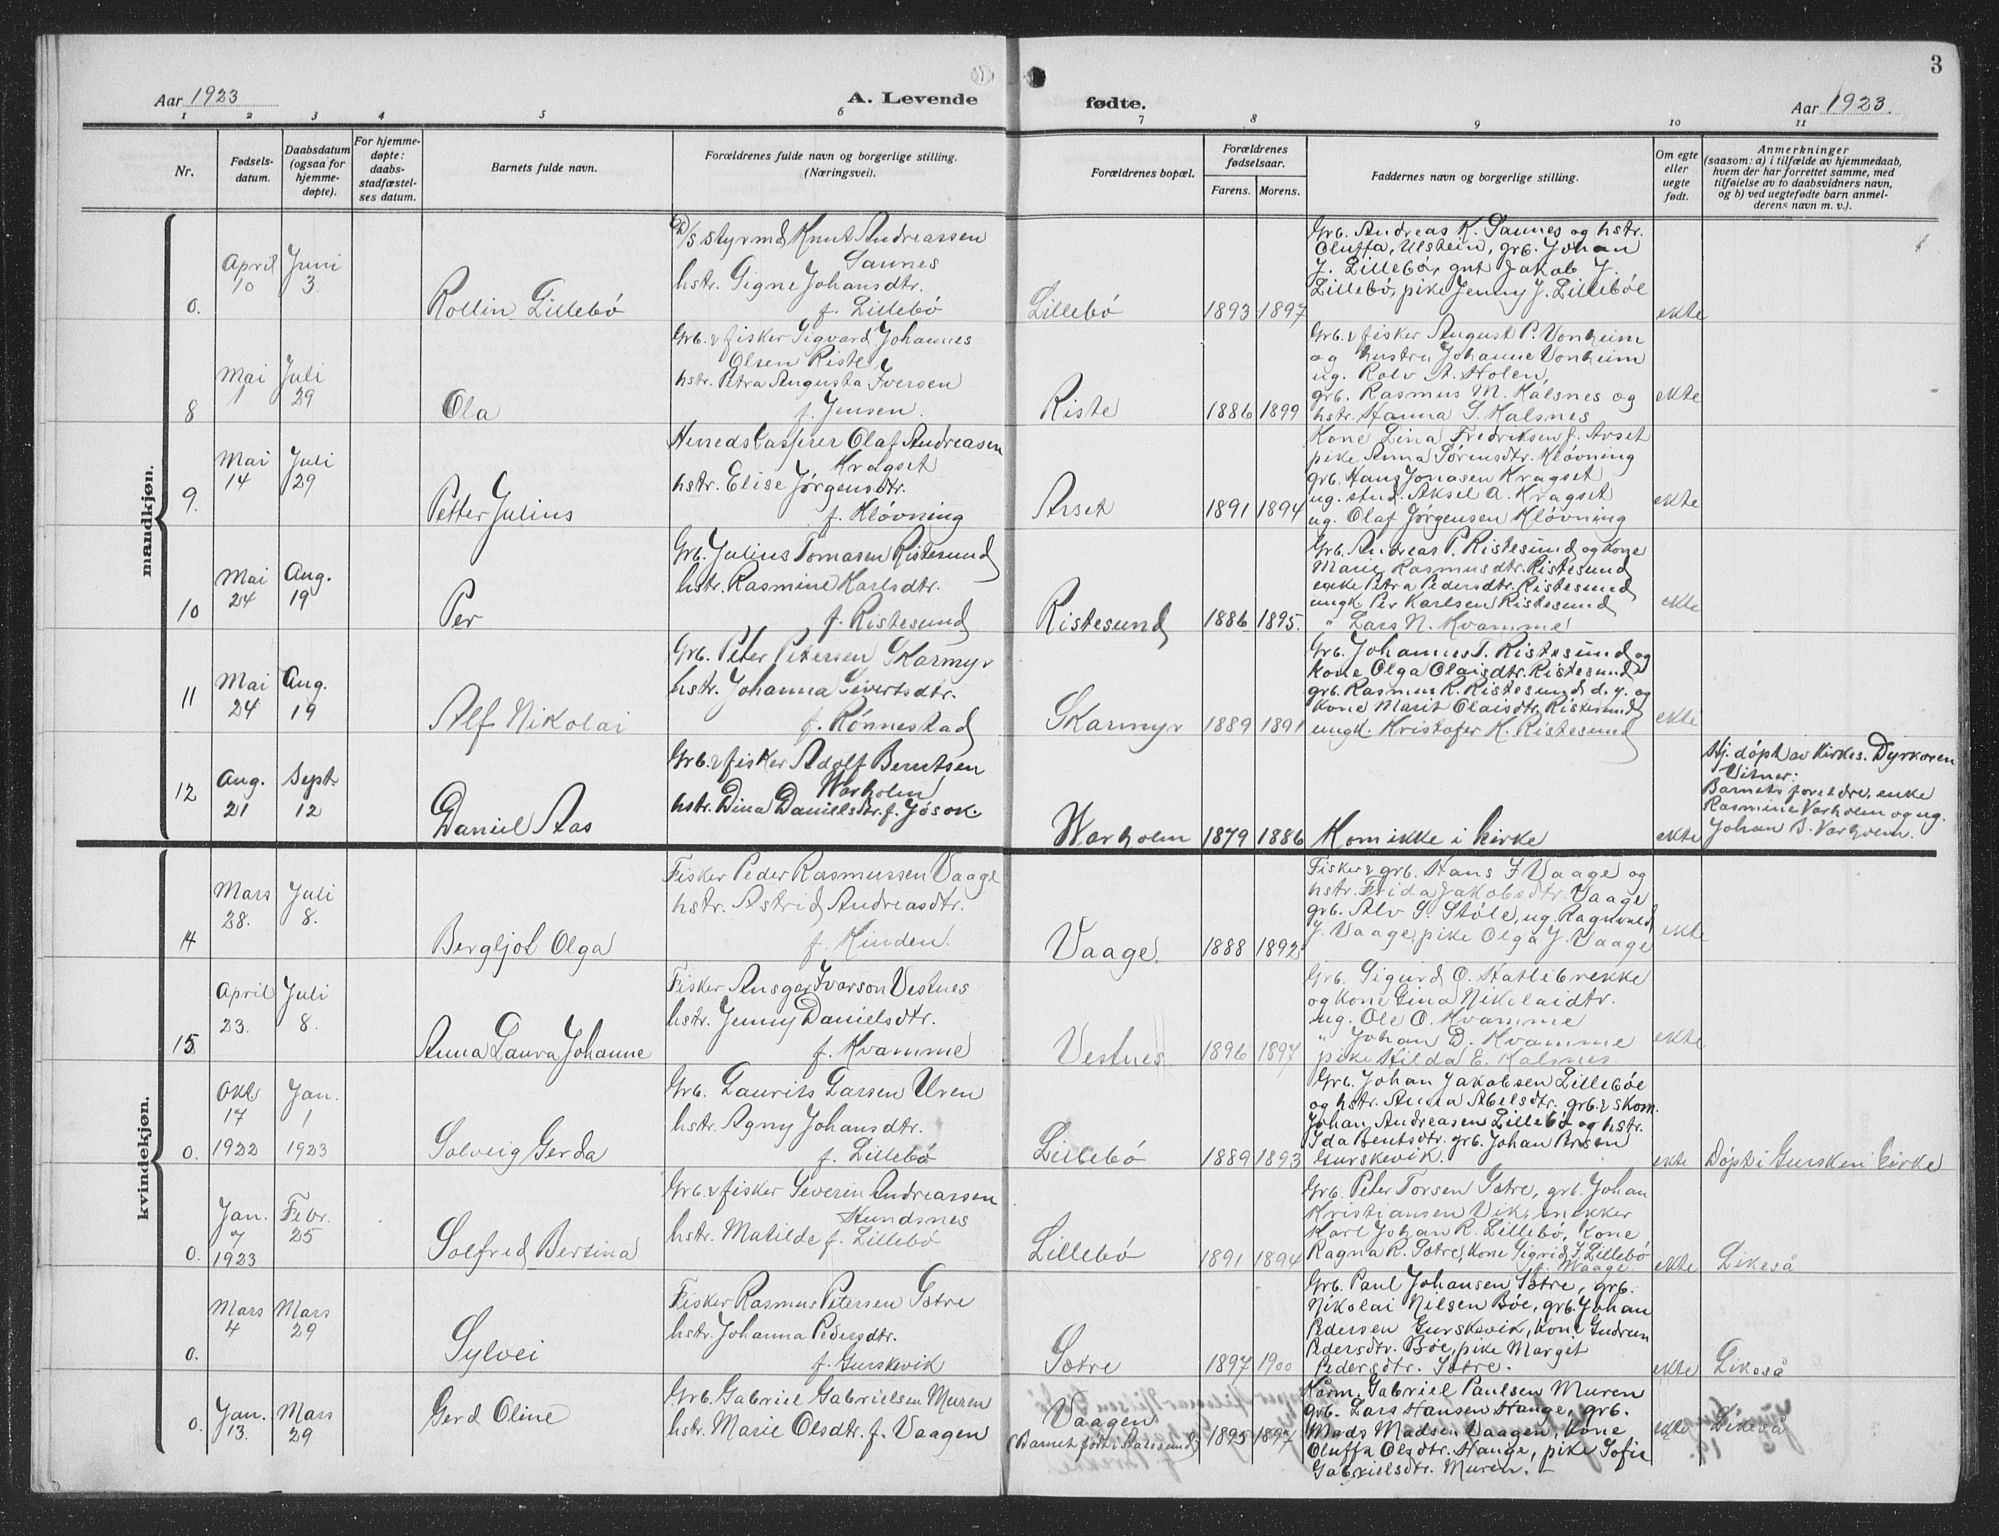 3
Aar 1923
A. Levende
fødte.
Aar 1923.
1 2 3 4 5 6 7 8 9 10 11
Nr.
Fødsels-
datum.
Daabsdatum
(ogsaa for
hjemme-
døpte).
For hjemme-
døpte:
daabs-
stadfæstel-
ses datum.
Barnets fulde navn.
Forældrenes fulde navn og borgerlige stilling.
(Næringsvei).
Forældrenes bopæl.
Forældrenes
fødselsaar.
Farens. Morens.
Faddernes navn og borgerlige stilling.
Om egte
eller
uegte
født.
Anmerkninger
(saasom: a) i tilfælde av hjemmedaab,
hvem der har forrettet samme, med
tilføielse av to daabsvidners navn,
og b) ved uegtefødte barn anmel-
derens navn m. v.).
mandkjøn.
0.
April
10
Juni
3.
Rollin Lillebö
D/S styrmd Knut Andreassen
Saunes
hstr. Signe Johansdtr.
f. Lillebö
Lillebö
1893 1897
Grb. Andreas K. Saunes og hstr.
Oluffa, Ulstein, grb. Johan
J. Lillebö, gut Jakob J.
Lillebö, pike Jenny J. Lillebö
ekte
8
Mai
1
Juli
29
Ola
Grb. & fisker Sigvard Johannes
Olsen Riste,
hstr. Petra Augusta Iversen
f. Jensen.
Riste
1886 1899
Grb. & fisker August P. Vonheim
og hustru Johanne Vonheim
ug. Rolv A. Holen,
grb. Rasmus M. Kalsnes og
hstr. Hanna S. Kalsnes
ekte
9.
Mai
14
Juli
29
Petter Julius
Herredskasserer Olaf Andreasen
Kragset
hstr. Elise Jørgensdtr.
f. Klövning
Arset
1891 1894
Kone Lina Fredriksen f. Arset
pike Anna Sørensdtr. Klövning
grb. Hans Jonasen Kragset
ug. stud. Aksel A. Kragset
ug. Olaf Jørgensen Klövning
ekte
10
Mai
24
Aug.
19
Per
Grb. Julius Tomasen Ristesund
hstr. Rasmine Karlsdtr.
f. Ristesund
Ristesund
1886 1895.
Grb. Andreas P. Ristesund og kone
Marie Rasmusdtr. Ristesund
enke Petra Pedersdtr. Ristesund
ungk. Per Karlsen Ristesund
" Lars N. Kvamme
ekte
11
Mai
24
Aug.
19
Alf Nikolai
Grb. Peter Petersen Skarmyr
hstr. Johanna Sivertsdtr.
f. Rönnestad
Skarmyr
1889 1891
Grb. Johannes T. Ristesund og
kone Olga Olaisdtr. Ristesund
grb. Rasmus R. Ristesund d. y. og
kone Marit Olaisdtr. Ristesund
ungk. Kristofer K. Ristesund
ekte
12
Aug.
21
Sept.
12
Daniel Aas
Grb. & fisker Adolf Berntsen
Warholm
hstr. Dina Danielsdtr. f. Jösok
Warholm
1879 1886
Kom ikke i kirke
ekte
Hj. döpt av kirkes. Dyrkoren
Vitner:
Barnets foreldre, enke
Rasmine Varholm og ug.
Johan B. Varholm.
kvindekjøn.
14
Mars
28.
Juli
8.
Bergljot Olga
Fisker Peder Rasmussen Vaage
hstr. Astrid Andreasdtr.
f. Kinden.
Vaage.
1888 1892
Fisker & grb. Hans J Vaage og
hstr. Frida Jakobsdtr. Vaage
grb. Alv S. Stöle, ug. Ragnvald
J. Vaage, pike Olga J. Vaage
ekte
15
April
23.
Juli
8.
Anna Laura Johanne
Fisker Ansgar Ivarson Vestnes
hstr. Jenny Danielsdtr.
f. Kvamme
Vestnes
1896 1897
Grb. Sigurd O. Hatlebrekke
og kone Gina Nikolaidtr.
ug. Ole O. Kvamme
" Johan D. Kvamme
pike Hilda E. Kalsnes
ekte
0.
Okt
17
1922
Jan.
1
1923
Solveig Gerda
Grb. Laurits Larsen Uren
hstr. Agny Johansdtr.
f. Lillebö
Lillebö
1889 1893
Grb. Johan Jakobsen Lillebö
og hstr. Anna Abelsdtr. grb. & skom.
Johan Andreasen Lillebö og hstr.
Ida Bentsdtr. grb. Johan Arsen
Gurskevik.
ekte
Döpt i Gursken kirke
0.
Jan.
7
1923
Febr.
25
Solfrid Bertina
Grb. & fisker Severin Andreassen
Hundsnes
hstr. Matilde f. Lillebö
Lillebö
1891 1894
Grb. Peter Torsen Sætre, grb. Johan
Kristiansen Vik, snekker
Karl Johan R. Lillebö, kone
Ragna R. Sætre, kone Sigrid J. Lillebö
f. Waage
ekte
Likeså
0.
Mars
4
Mars
29
Sylvei
Fisker Rasmus Petersen Sætre
hstr. Johanna Pedersdtr.
f. Gurskevik
Sætre
1897 1900
Grb. Paul Johansen Sætre, grb.
Nikolai Nilsen Böe, grb. Johan
Pedersen Gurskevik, kone Gudrun
Pedersdtr. Böe, pike Marget
Pedersdtr. Sætre.
ekte
Likeså
0.
Jan.
13.
Mars
29
Gerd Oline
Grb. Gabriel Gabrielsen Muren
hstr. Marie Olsdtr. f. Vaagen
Vaagen
(Barnet født i Aalesund)
1895 1897
Kårm. Gabriel Paulsen Muren
grb. Lars Hansen Hauge, grb.
Mads Madsen Vaagen, kone
Oluffa Olsdtr. Hauge, pike Sofie
Gabrielsdtr. Muren.
ekte
Likeså